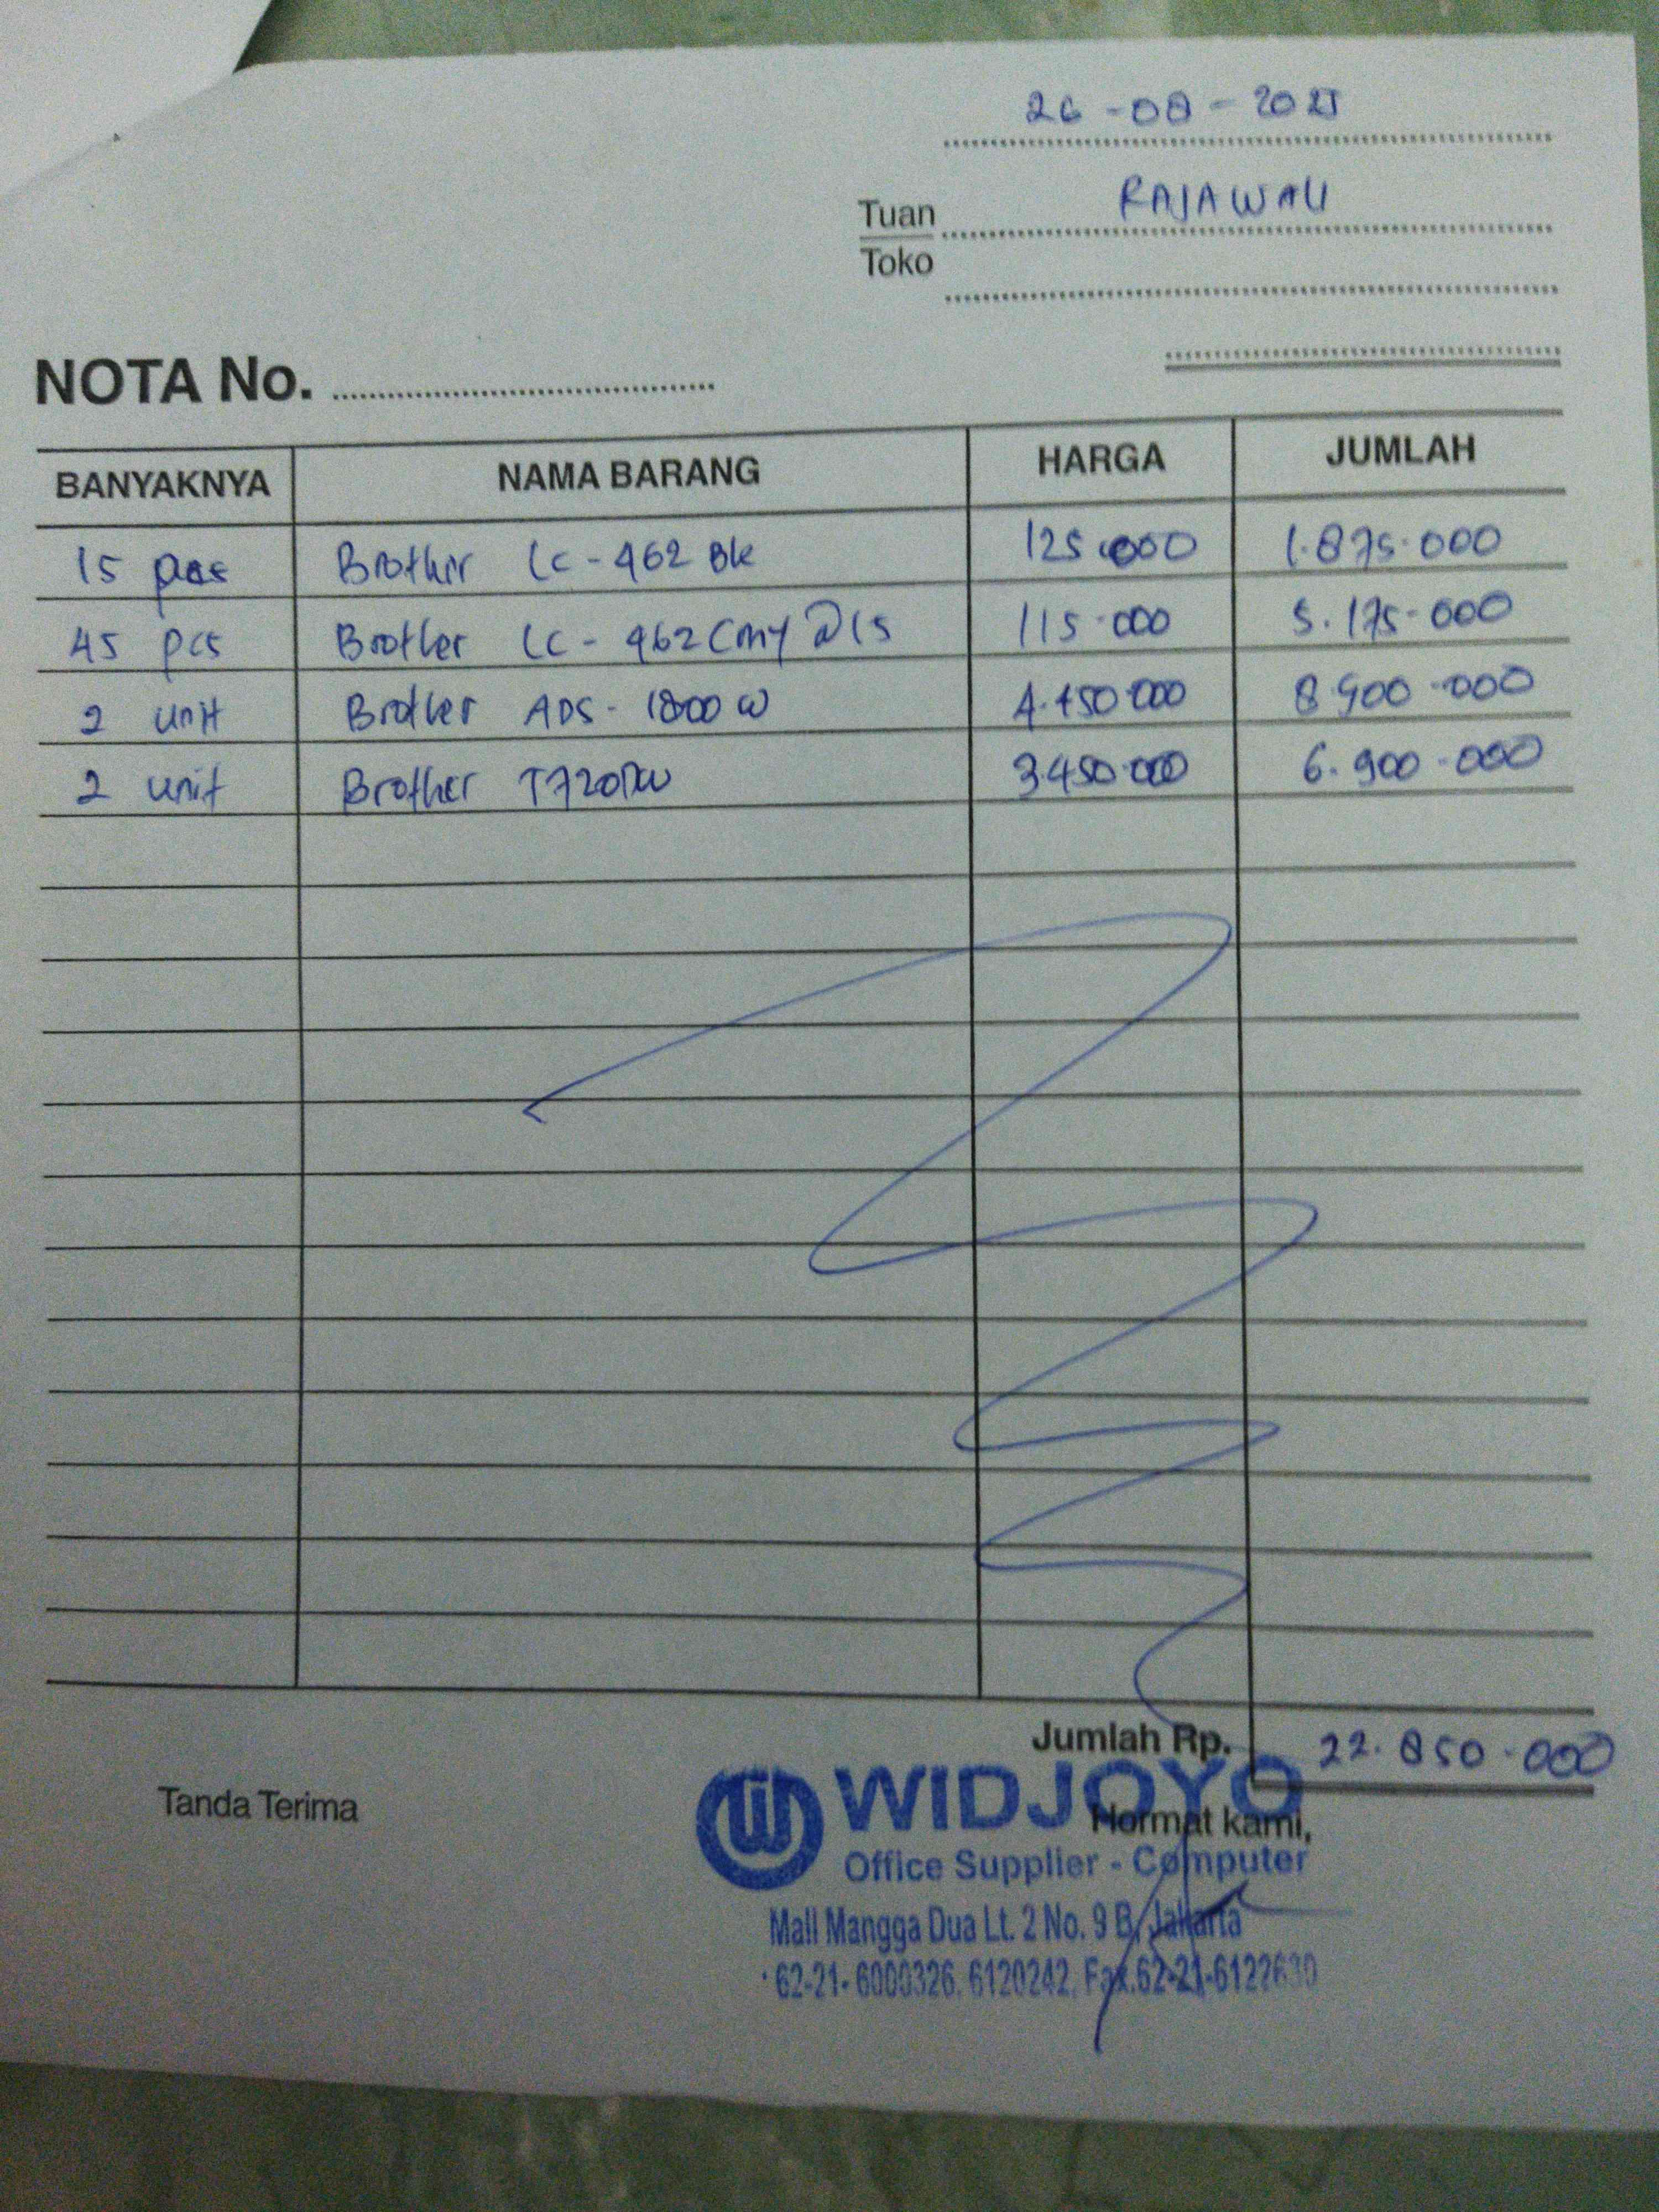 26-08-2025
Tuan RAJAWALI
Toko
NOTA No.
BANYAKNYA NAMA BARANG HARGA JUMLAH
15 pcs Brother LC-462 BK 125.000 1.875.000
45 pcs Brother LC-462 CMY @15 115.000 5.175.000
2 unit Brother ADS-1800 W 4.450.000 8.900.000
2 unit Brother T720DW 3.450.000 6.900.000
Jumlah Rp. 22.850.000
Tanda Terima
Hormat kami,
WIDJOYO
Office Supplier - Computer
Mall Mangga Dua Lt. 2 No. 9 B, Jakarta
62-21-6000326, 6120242, Fax.62-21-6122630